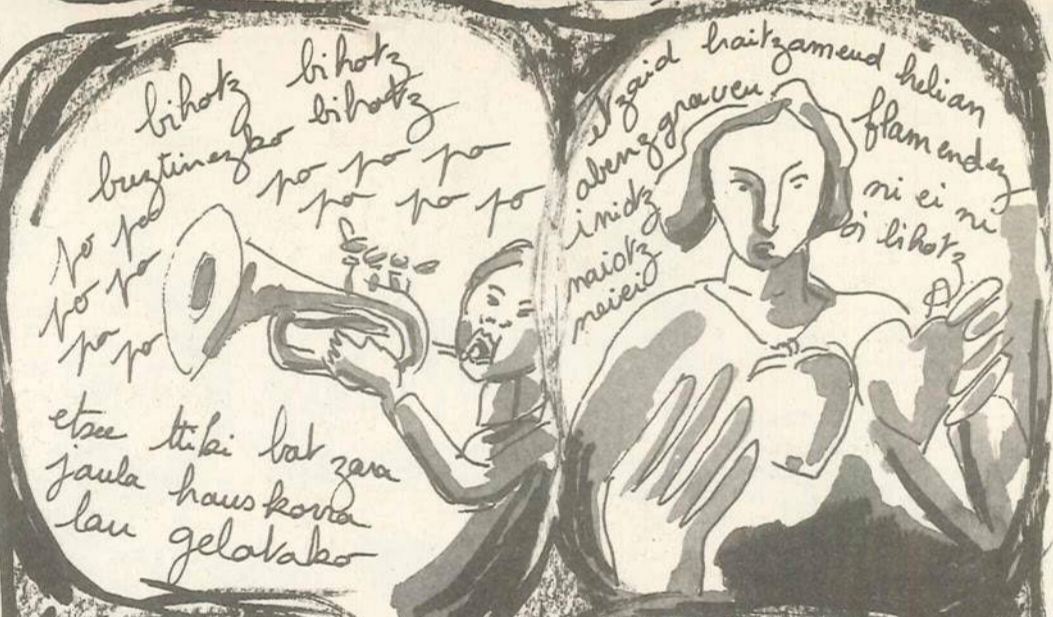 bihotz bihotz
buztinezko bihotz
po po po
po po po
po po
po po
po po
etxe ttiki bat zara
jaula hauskorra
lau gelatako
etzaid haitzamend helian
abenzgraveu flamendez
inidz ni ei ni
naiotz oi bihotz
neiei